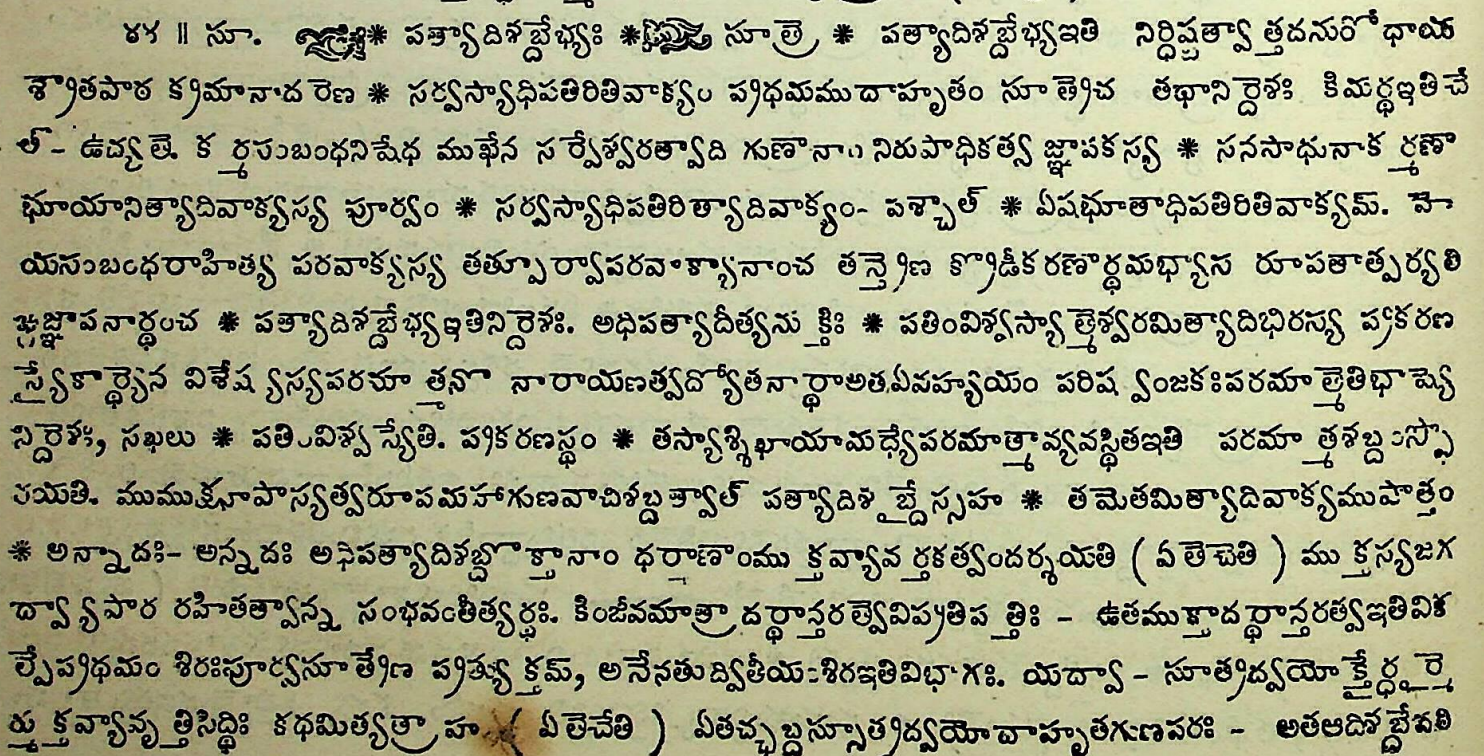 ౪౪ || సూ. * పత్యాదిశబ్దేభ్యః * సూత్రె * పత్యాదిశబ్దేభ్యఇతి నిర్ధిష్టత్వా త్తదనురో ధాయ
శ్రౌతపాఠ క్రమానాద రెణ * సర్వస్యాధిపతిరితివాక్యం ప్రథమముదాహృతం సూత్రెచ తథానిర్దెశః కిమర్థఇతిచే
త్ - ఉచ్యతె. క ర్మసంబంధనిషేధ ముఖేన సర్వేశ్వరత్వాది గుణానాం నిరుపాధికత్వ జ్ఞాపకస్య * సనసాధునాక ర్మణా
భూయానిత్యాదివాక్యస్య పూర్వం * సర్వస్యాధిపతిరిత్యాదివాక్యం- పశ్చాత్ * ఏషభూతాధిపతిరితివాక్యమ్. హె
యసంబంధరాహిత్య పరవాక్యస్య తత్పూర్వాపరవాక్యానాంచ తన్త్రెణ క్రోడీకరణార్థమభ్యాస రూపతాత్పర్యలి
ఙ్గజ్ఞాపనార్థంచ * పత్యాదిశబ్దేభ్యఇతినిర్దెశః. అధిపత్యాదీత్యను క్తిః * పతింవిశ్వస్యాత్మెశ్వరమిత్యాదిభిరస్య ప్రకరణ
స్యైకార్థ్యెన విశేష్యస్యపరమా త్మనొ నారాయణత్వద్యోతనార్థాఅతఏవహ్యయం పరిష వ్ంజకఃపరమాత్మెతిభాష్యె
నిర్దెశః, సఖలు * పతింవిశ్వస్యేతి. ప్రకరణస్థం * తస్యాశ్శిఖాయామధ్యేపరమాత్మావ్యవస్థితఇతి పరమా త్మశబ్దంస్ఫొ
రయతి. ముముక్షూపాస్యత్వరూపమహాగుణవాచిశబ్దత్వాత్ పత్యాదిశ బ్దైస్సహ * తమెతమిత్యాదివాక్యముపాత్తం
* అన్నాదః- అన్నదః అధిపత్యాదిశబ్దొక్తానాం ధర్మాణాంము క్తవ్యావ ర్తకత్వందర్శయతి ( ఏతెచెతి ) ము క్తస్యజగ
ద్వ్యాపార రహితత్వాన్న సంభవంతీత్యర్థః. కింజీవమాత్రా దర్థాన్తరత్వెవిప్రతిప త్తిః - ఉతముక్తాదర్థాన్తరత్వఇతివిక
ల్పేప్రథమం శిరఃపూర్వసూత్రేణ ప్రత్యు క్తమ్, అనేనతుద్వితీయఃశిరఇతివిభాగః. యద్వా - సూత్రద్వయో క్తైర్ధర్మై
ర్ము క్తవ్యావృ త్తిసిద్ధిః కథమిత్యత్రా హ ( ఏతెచేతి ) ఏతచ్ఛబ్దస్సూత్రద్వయోదాహృతగుణపరః - అతఆదిశబ్దేవతి